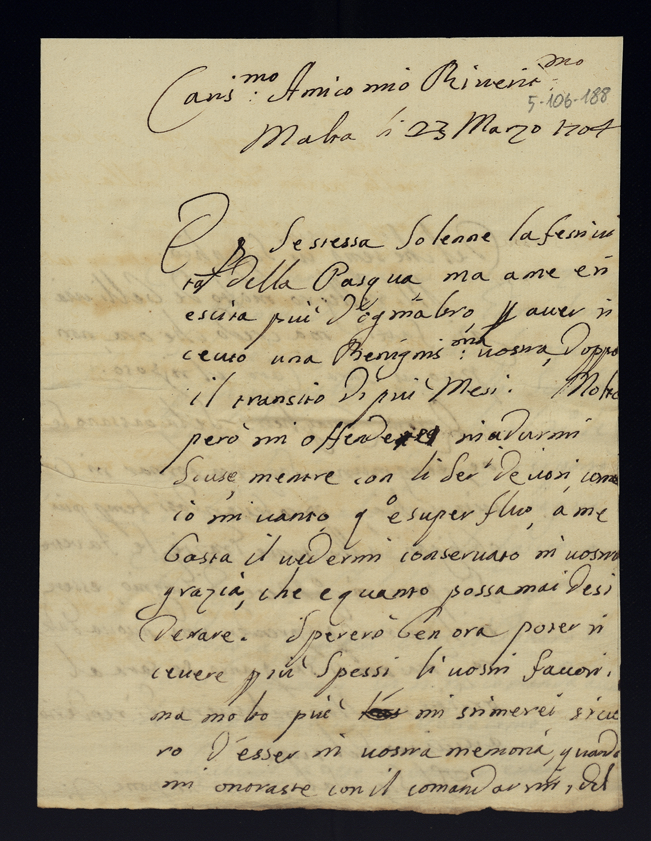 Caris:mo Amico mio Riverit:mo
5-106-188
Malta li 23 Marzo 1704
È p se stessa solenne la festivi
tà della Pasqua ma a me è ri
escita più d'ogn'altro p aver ri
ceuto una Benignis:ma vostra, doppo
il transito di più Mesi. Molto
però mi offende in adurmi
scuse, mentre con li Ser.i devoti, come
io mi vanto, q.o è superfluo, a me
basta il vedermi conservato in vostra
grazia, che è quanto possa mai desi
derare. Spererò ben ora poter ri
cevere più spessi li vostri favori,
ma molto più mi stimerei sicu
ro d'esser in vostra memoria, quando
mi onoraste con il comandarmi, del